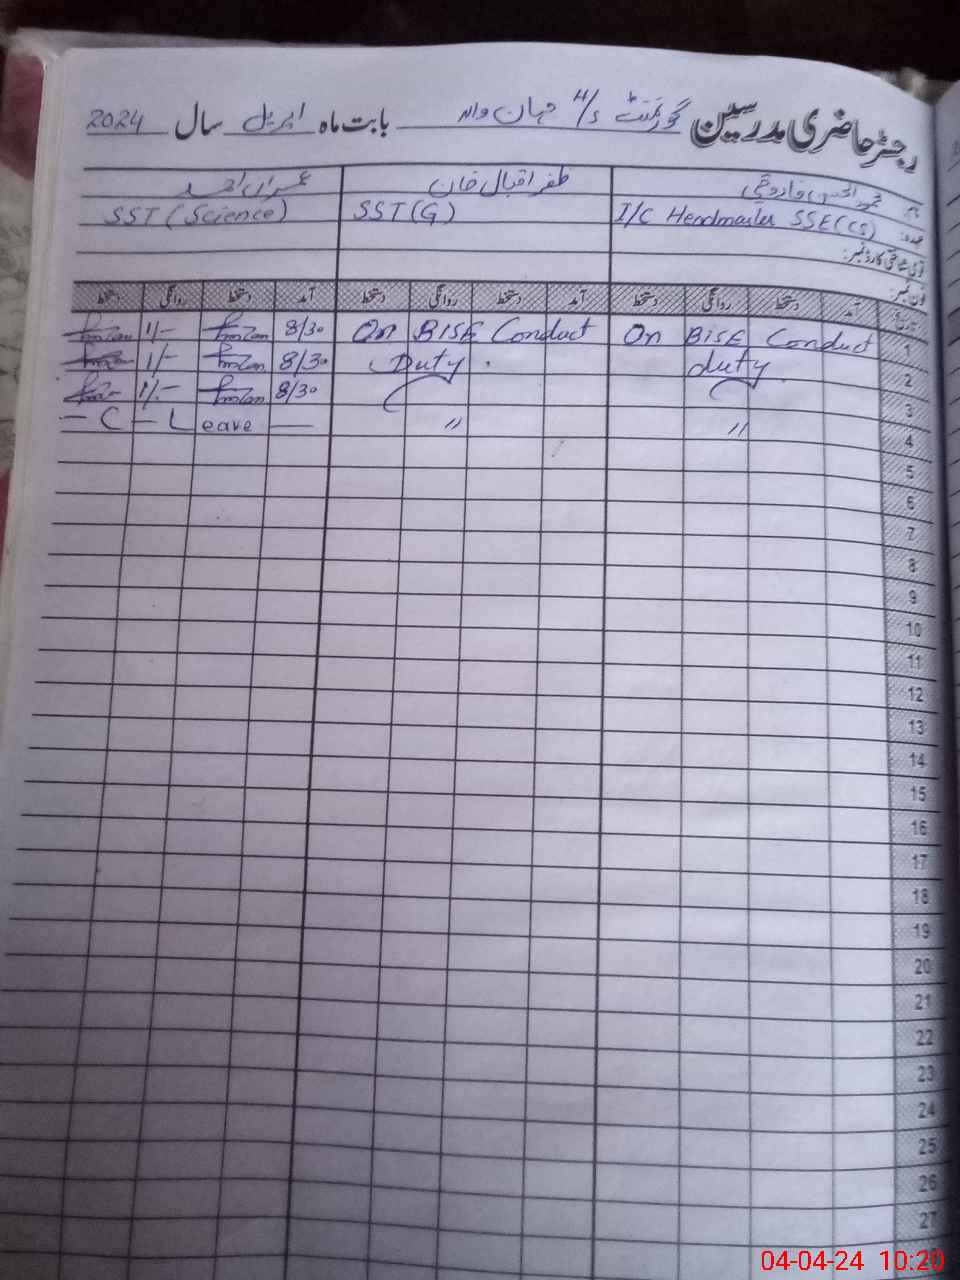 رجسٹر حاضری مدرسین گورنمنٹ H/S جہان والہ بابت ماہ اپریل سال 2024
نام: فاروقی ظفر اقبال خان عمران احمد
عہدہ: I/C Headmaster SSE(CS) SST(G) SST (Science)
قومی شناختی کارڈ نمبر:
فون نمبر:
تاریخ آمد دستخط روانگی دستخط آمد دستخط روانگی دستخط آمد دستخط روانگی دستخط
1/- 8/30 On BISE Conduct On BISE Conduct 1
1/- 8/30 Duty. duty. 2
1/- 8/30 3
- C - Leave — " " 4
5
6
7
8
9
10
11
12
13
14
15
16
17
18
19
20
21
22
23
24
25
26
27
04-04-24 10:20